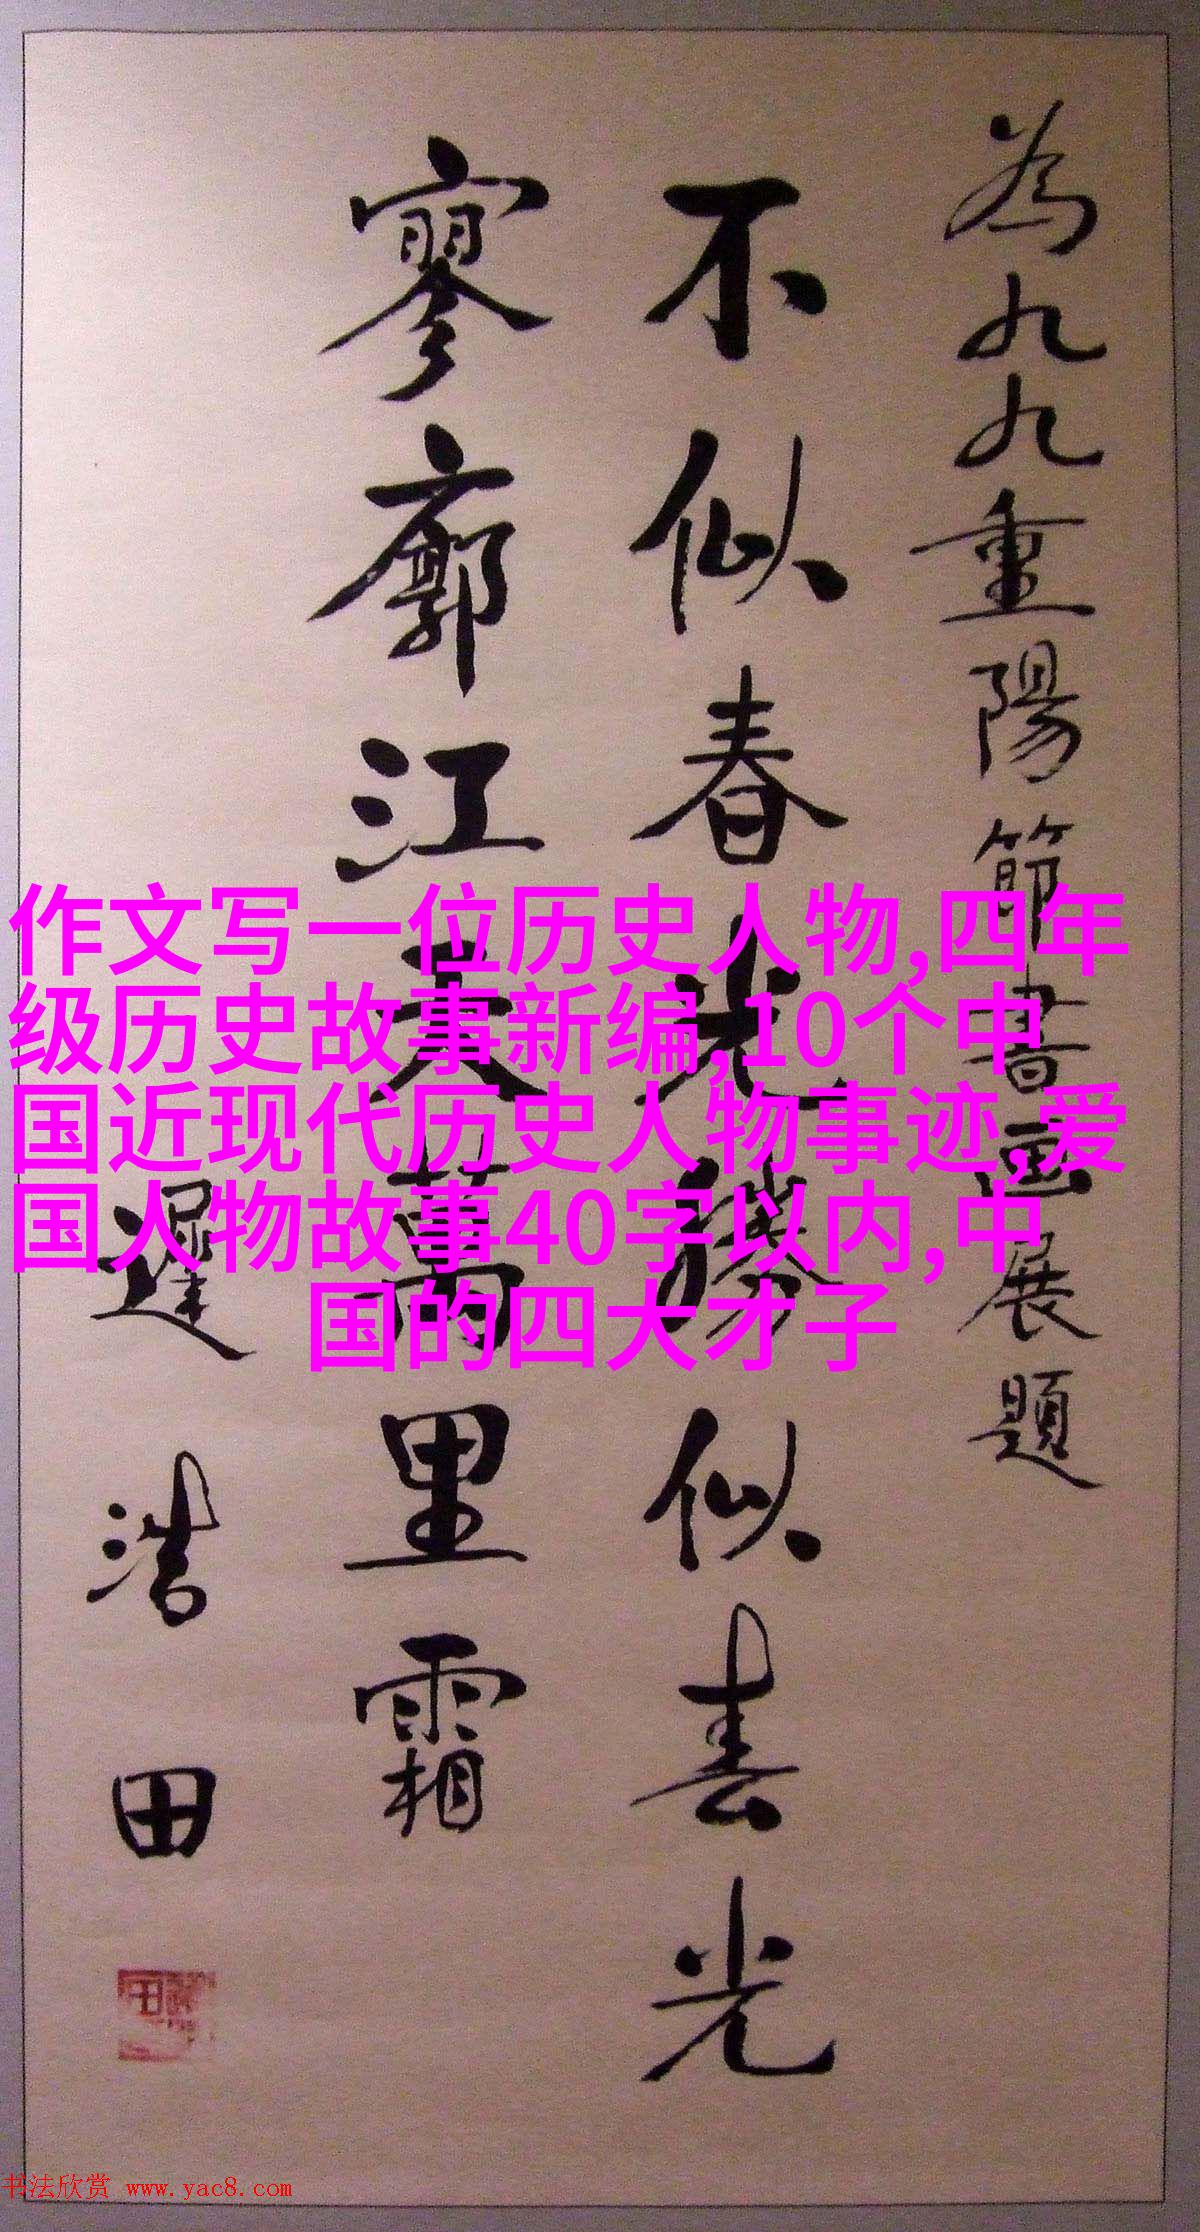 為九九重陽節書画展題
不似春光勝似春光
寥廓江天萬里霜
遲浩田
作文写一位历史人物,四年
级历史故事新编,10个中
国近现代历史人物事迹,爱
国人物故事40字以内,中
国的四大才子
书法欣赏 www.yac8.com